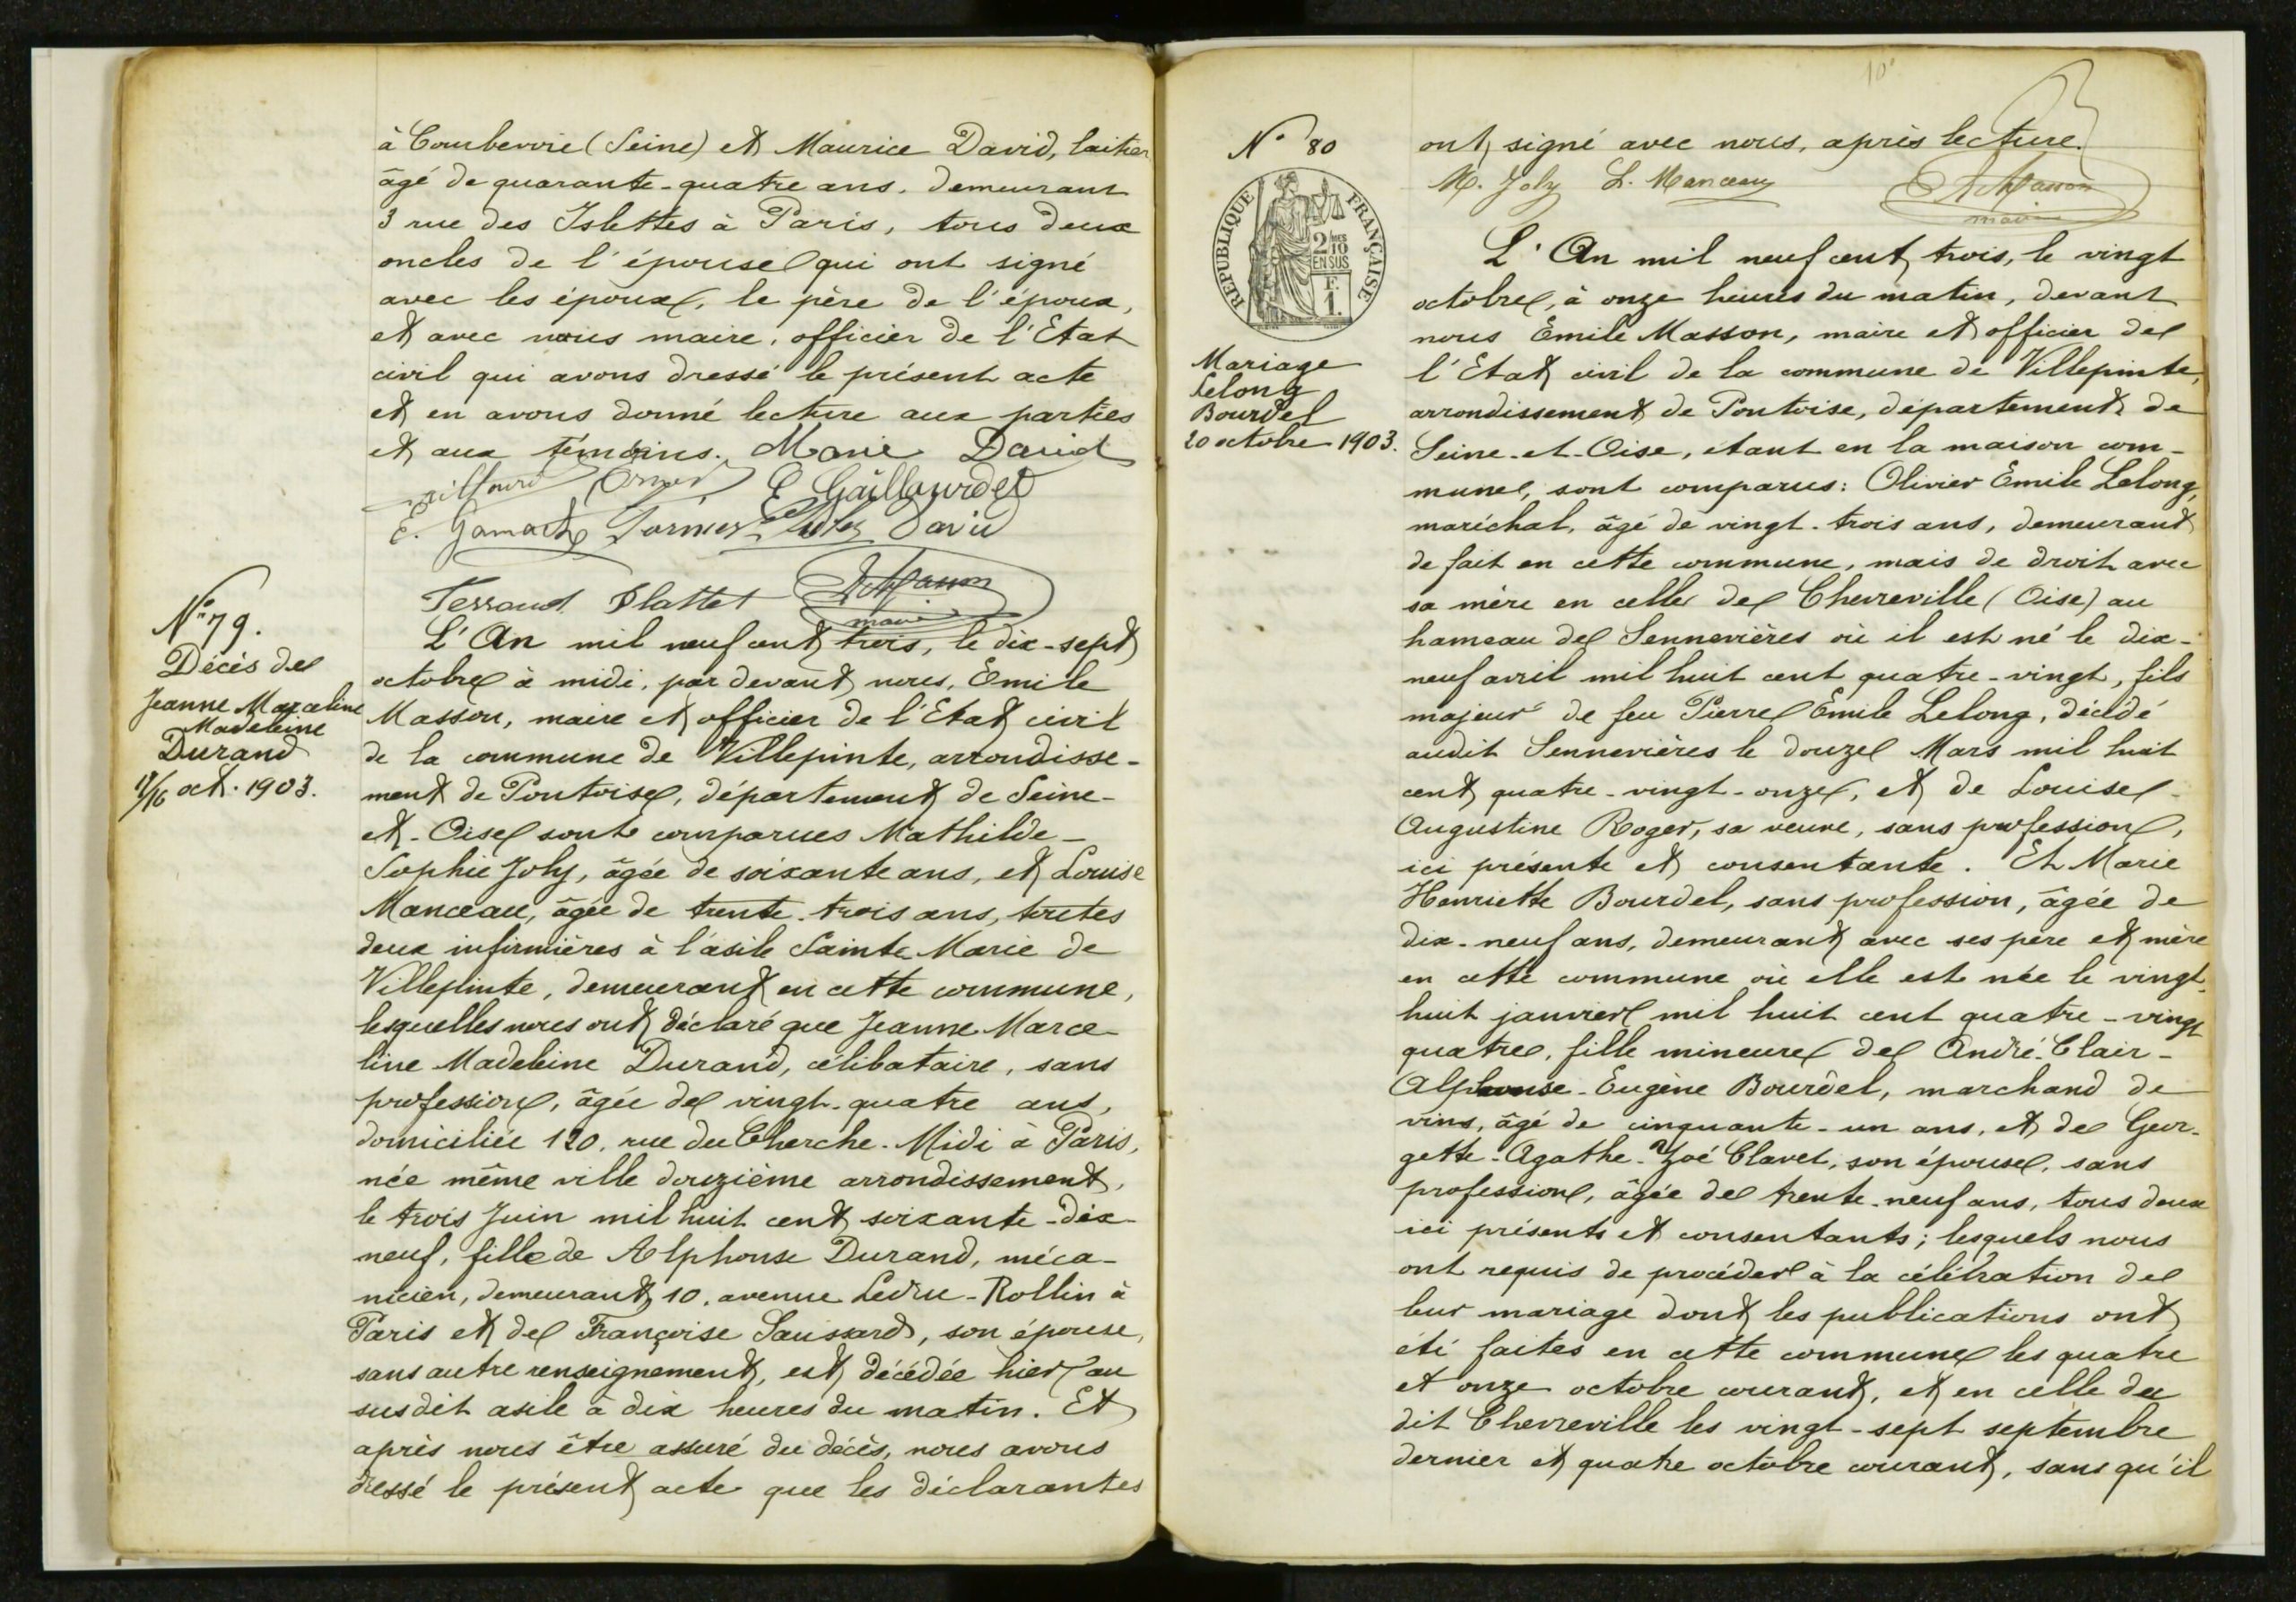 à Courbevoie (Seine) et Maurice David, laitier
âgé de quarante-quatre ans, demeurant
3 rue des Islettes à Paris, tous deux
oncles de l'épouse qui ont signé
avec les époux, le père de l'époux,
et avec nous maire, officier de l'Etat
civil qui avons dressé le présent acte
et en avons donné lecture aux parties
et aux témoins. Marie David
E. Gaillourdet
E. Gamache David
Terraud Plattet A. Masson
maire
N° 79.
Décès de
Jeanne Marceline
Madeleine
Durand
17/16 oct. 1903.
L'An mil neuf cent trois, le dix-sept
octobre à midi, par devant nous, Emile
Masson, maire et officier de l'Etat civil
de la commune de Villepinte, arrondisse-
ment de Pontoise, département de Seine-
et-Oise sont comparues Mathilde-
Sophie Joly, âgée de soixante ans, et Louise
Manceau, âgée de trente-trois ans, toutes
deux infirmières à l'asile Sainte Marie de
Villepinte, demeurant en cette commune,
lesquelles nous ont déclaré que Jeanne Marce-
line Madeleine Durand, célibataire, sans
profession, âgée de vingt-quatre ans,
domiciliée 120, rue du Cherche-Midi à Paris,
née même ville douzième arrondissement,
le trois Juin mil huit cent soixante-dix-
neuf, fille de Alphonse Durand, méca-
nicien, demeurant 10, avenue Ledru-Rollin à
Paris et de Françoise Saussard, son épouse,
sans autre renseignement, est décédée hier au
susdit asile à dix heures du matin. Et
après nous être assuré du décès, nous avons
dressé le présent acte que les déclarantes
10
N° 80
ont signé avec nous, après lecture.
M. Joly L. Manceau A. Masson
maire
REPUBLIQUE FRANÇAISE
2/10 EN SUS
F. 1.
Mariage
Lelong
Bourdel
20 octobre 1903.
L'An mil neuf cent trois, le vingt
octobre, à onze heures du matin, devant
nous Emile Masson, maire et officier de
l'Etat civil de la commune de Villepinte,
arrondissement de Pontoise, département de
Seine-et-Oise, étant en la maison com-
mune, sont comparus: Olivier Emile Lelong,
maréchal, âgé de vingt-trois ans, demeurant
de fait en cette commune, mais de droit avec
sa mère en celle de Chevreville (Oise) au
hameau de Sennevières où il est né le dix-
neuf avril mil huit cent quatre-vingt, fils
majeur de feu Pierre Emile Lelong, décédé
audit Sennevières le douze Mars mil huit
cent quatre-vingt-onze, et de Louise-
Augustine Roger, sa veuve, sans profession,
ici présente et consentante. Et Marie
Henriette Bourdel, sans profession, âgée de
dix-neuf ans, demeurant avec ses père et mère
en cette commune où elle est née le vingt-
huit janvier mil huit cent quatre-vingt
quatre, fille mineure de André-Clair-
Alphonse-Eugène Bourdel, marchand de
vins, âgé de cinquante-un ans, et de Geor-
gette-Agathe-Zoé Clavet, son épouse, sans
profession, âgée de trente-neuf ans, tous deux
ici présents et consentants; lesquels nous
ont requis de procéder à la célébration de
leur mariage dont les publications ont
été faites en cette commune les quatre
et onze octobre courant, et en celle du
dit Chevreville les vingt-sept septembre
dernier et quatre octobre courant, sans qu'il